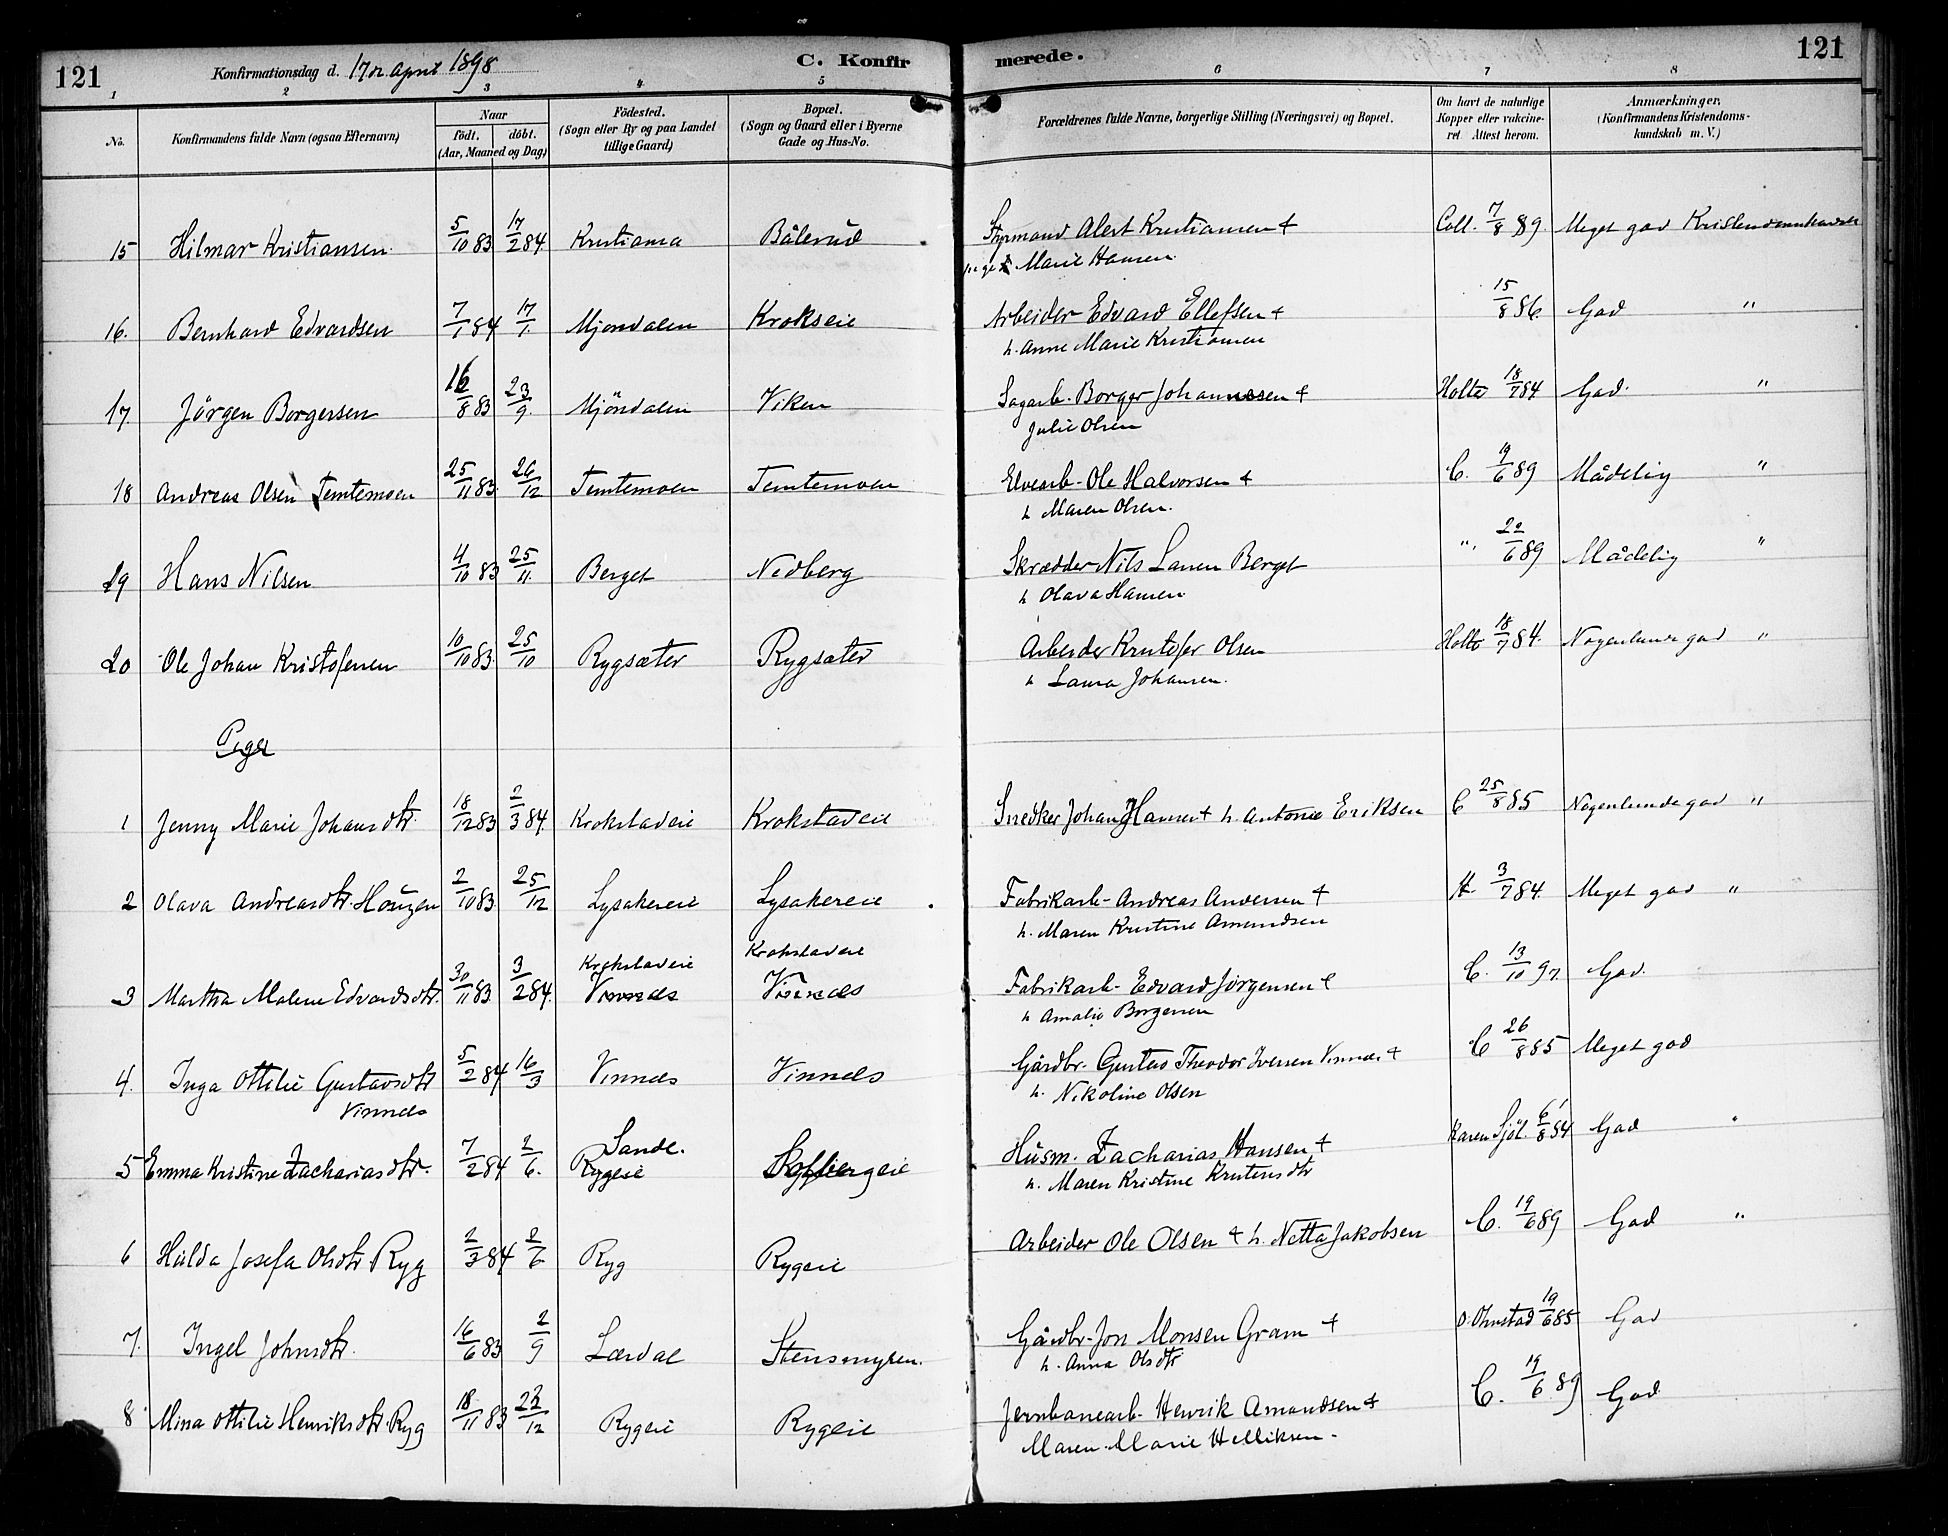 121 Konfirmationsdag d. 17de April 1898 C. Konfirmerede. 121
1 2 3 4 5 6 7 8
No. Konfirmandens fulde Navn (ogsaa Efternavn) Naar födt. döbt. (Aar, Maaned og Dag) Födested. (Sogn eller By og paa Landet tillige Gaard) Bopæl. (Sogn og Gaard eller i Byerne Gade og Hus-No. Forældrenes fulde Navne, borgerlige Stilling (Næringsvei) og Bopæl. Om havt de naturlige Kopper eller vakcineret. Attest herom. Anmærkninger. (Konfirmandens Kristendomskundskab m. V.)
15 Hilmar Kristiansen 5/10 83 17/2 84. Kristiania Bålerud Styrmand Alert Kristiansen + Coll. 7/8 89. Meget god
Marie Hansen
16. Bernhard Edvardsen 7/1 84 17/1. Mjöndalen Krokseie Arbeider Edvard Ellefsen + 15/8 86. God "
h. Anne Marie Kristiansen
17. Jörgen Borgersen 16/8 83 23/9. Mjöndalen Viken Sagarb. Borger Johannesen + Holte 18/7 84 God. "
Julie Olsen
18 Andreas Olsen Temtemoen 25/11 83. 26/12 Temtemoen Temtemoen Elvearb. Ole Halvorsen + C. 19/6 89 Mådelig "
h Maren Olsen.
19 Hans Nilsen 4/10 83 25/11. Berget Nedberg Skrædder Nils Larsen Berget ". 22/6 89 Mådelig "
h Olava Hansen
20 Ole Johan Kristofersen 10/10 83. 25/10 Rygsæter Rygsæter Arbeider Kristofer Olsen Holte 18/7 84. Nogenlunde god "
h Laura Johansen.
Piger
1 Jenny Marie Johansdtr. 18/12 83 2/3 84. Krokstadeie Krokstadeie Snedker Johan Hansen + h. Antonie Eriksen C 25/8 85 Nogenlunde god "
2 Olava Andreasdtr. Hougen 2/10 83. 25/12 Lysakereie Lysakereie Fabrikarb. Andreas Andersen + H. 3/7 84. Meget god "
h. Maren Kristine Amundsen
Krokstadeie Krokstadeie
3 Martha Malene Edvardsdtr. 30/11 83. 3/2 84. Vinnæs Vinnæs Fabrikarb. Edvard Jörgensen + C. 13/10 97. God.
h Amalie Borgersen
4. Inga Ottilie Gustavsdtr 5/2 84 16/3 Vinnæs Vinnæs Gårdbr. Gustav Theodor Iversen Vinnæs + C 26/8 85 Meget god
Vinnæs h. Nikoline Olsen
Sande.
5 Emma Kristine Zachariasdtr. 7/2 84 2/6. Rygeie Husm. Zacharias Hansen + Karen Sjöl 6/8 84 God "
h. Maren Kristine Kristensdtr
6 Hilda Josefa Olsdtr Ryg 2/3 84 2/6 Ryg Rygeie Arbeider Ole Olsen + h. Netta Jakobsen C. 19/6 89 God "
7. Ingel Johnsdtr. 16/6 83 2/9 Lærdal Stensmyren. Gårdbr. Jon Monsen Gram + O. Ohnstad 19/6 85 God
h. Anna Olsdtr
8 Mina Ottilie Henriksdtr. Ryg 18/11 83 23/12 Rygeie Rygeie Jernbanearb. Henrik Amundsen + C. 19/6 89 God
Maren Marie Helliksen.